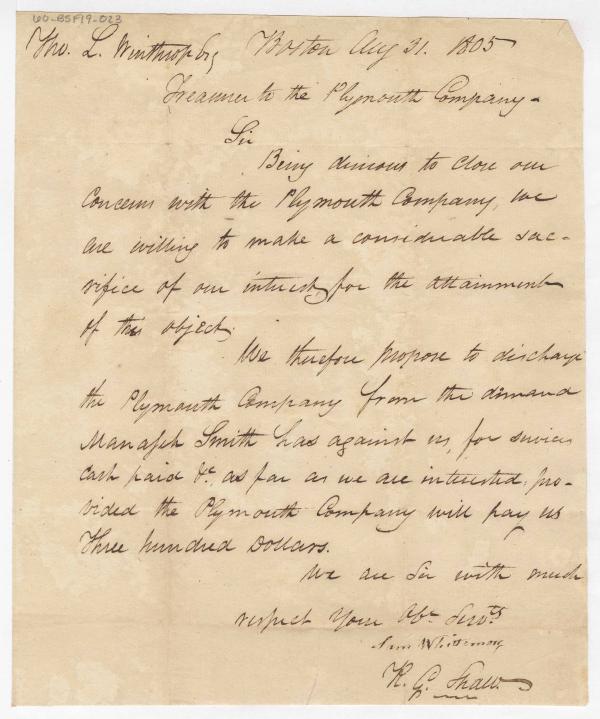 60-BSF19-023
Tho. L. Winthrop Esq Boston Aug 31. 1805
Treasurer to the Plymouth Company.
Sir
Being desirous to close our
Concerns with the Plymouth Company, we
are willing to make a considerable sac-
rifice of our interest, for the attainment
of this object.
We therefore propose to discharge
the Plymouth Company from the demand
Manasseh Smith has against us, for services
Cash paid &c, as far as we are interested, pro-
vided the Plymouth Company will pay us
Three hundred Dollars.
We are Sir with much
respect Your Obt Servts
Whittemore
R. G. Shaw